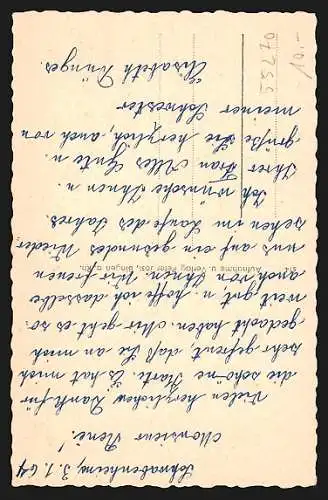 Schwabenheim, 3.1.64
Monsieur René!
Vielen herzlichen Dank für
die schöne Karte. Es hat mich
sehr gefreut, daß Sie an mich
gedacht haben. Mir geht es so-
weit gut, u. hoffe ich dasselbe
auch von Ihnen. Wir freuen
uns auf ein gesundes Wieder-
sehen im Laufe des Jahres.
Ich wünsche Ihnen u.
Ihrer Frau Alles Gute u.
grüße Sie herzlich, auch von
meiner Schwester
Elisabeth
Aufnahme u. Verlag Peter Jost, Bingen a. Rh.
55270
10.-